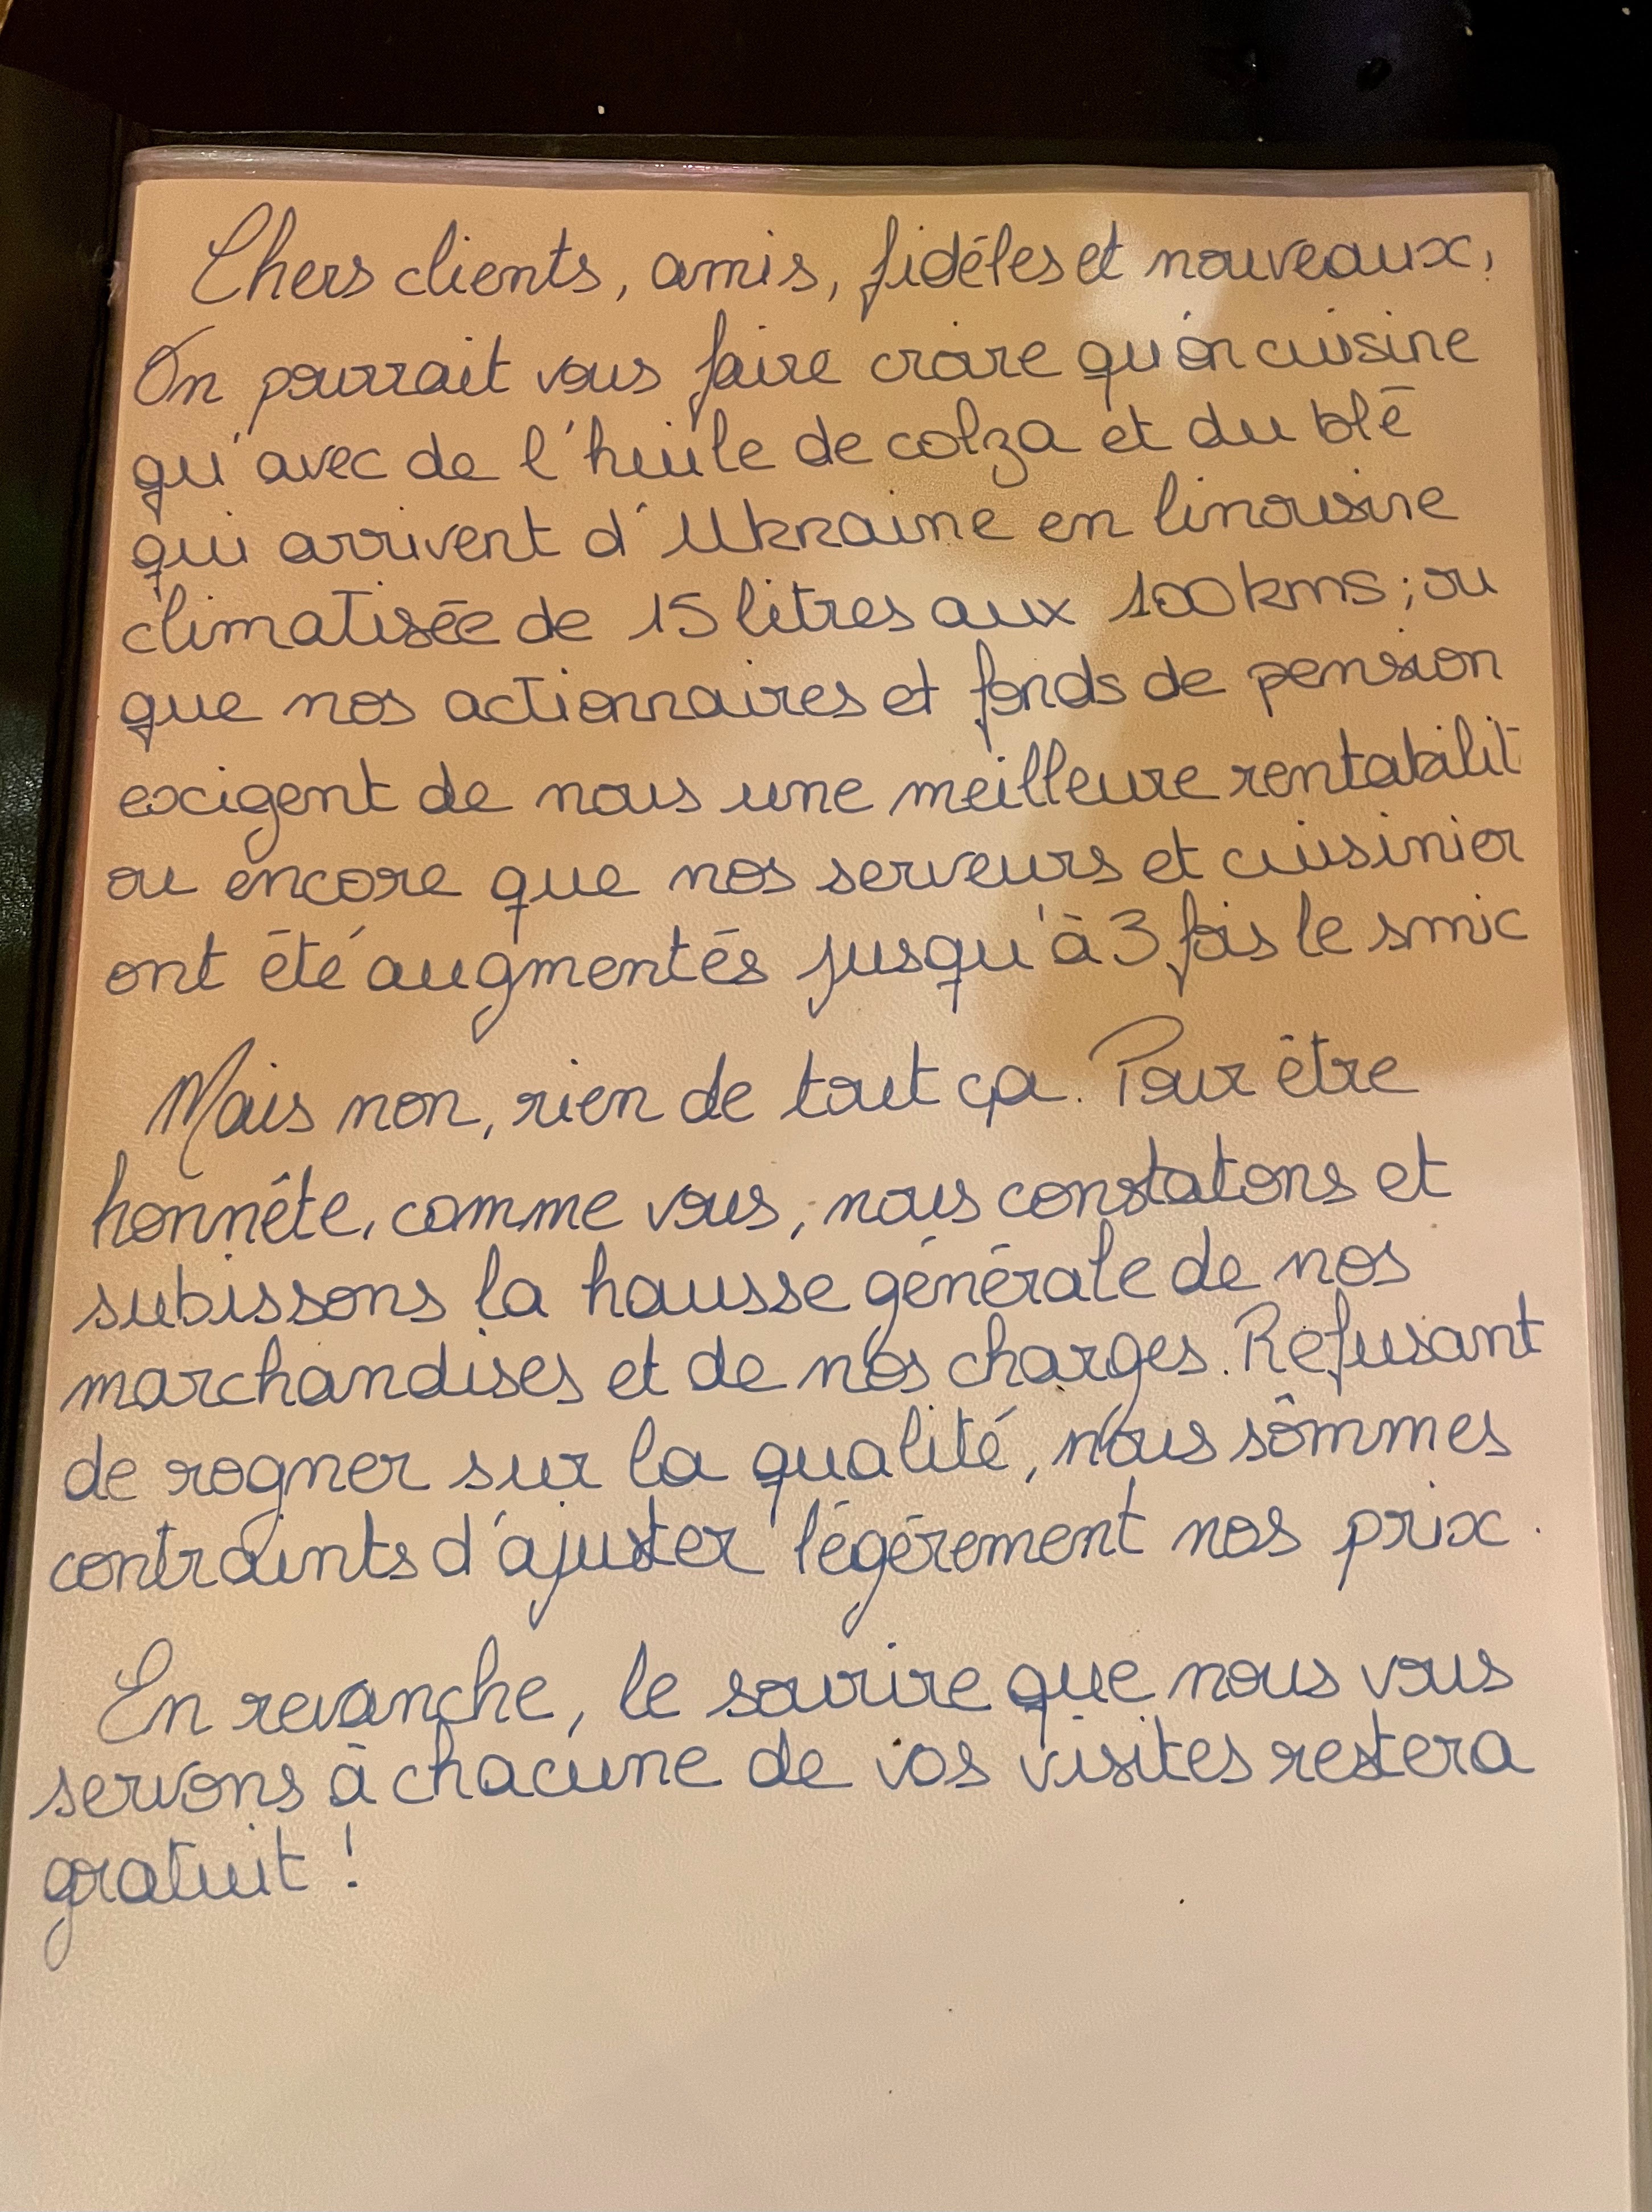 Chers clients, amis, fidéles et nouveaux,
On pourrait vous faire croire qu'on cuisine
qu'avec de l'huile de colza et du blé
qui arrivent d'Ukraine en limousine
climatisée de 15 litres aux 100 kms ; ou
que nos actionnaires et fonds de pension
exigent de nous une meilleure rentabilit
ou encore que nos serveurs et cuisinier
ont été augmentés jusqu'à 3 fois le smic
Mais non, rien de tout ça. Pour être
honnête, comme vous, nous constatons et
subissons la hausse générale de nos
marchandises et de nos charges. Refusant
de rogner sur la qualité, nous sommes
contraints d'ajuster légérement nos prix.
En revanche, le sourire que nous vous
servons à chacune de vos visites restera
gratuit !